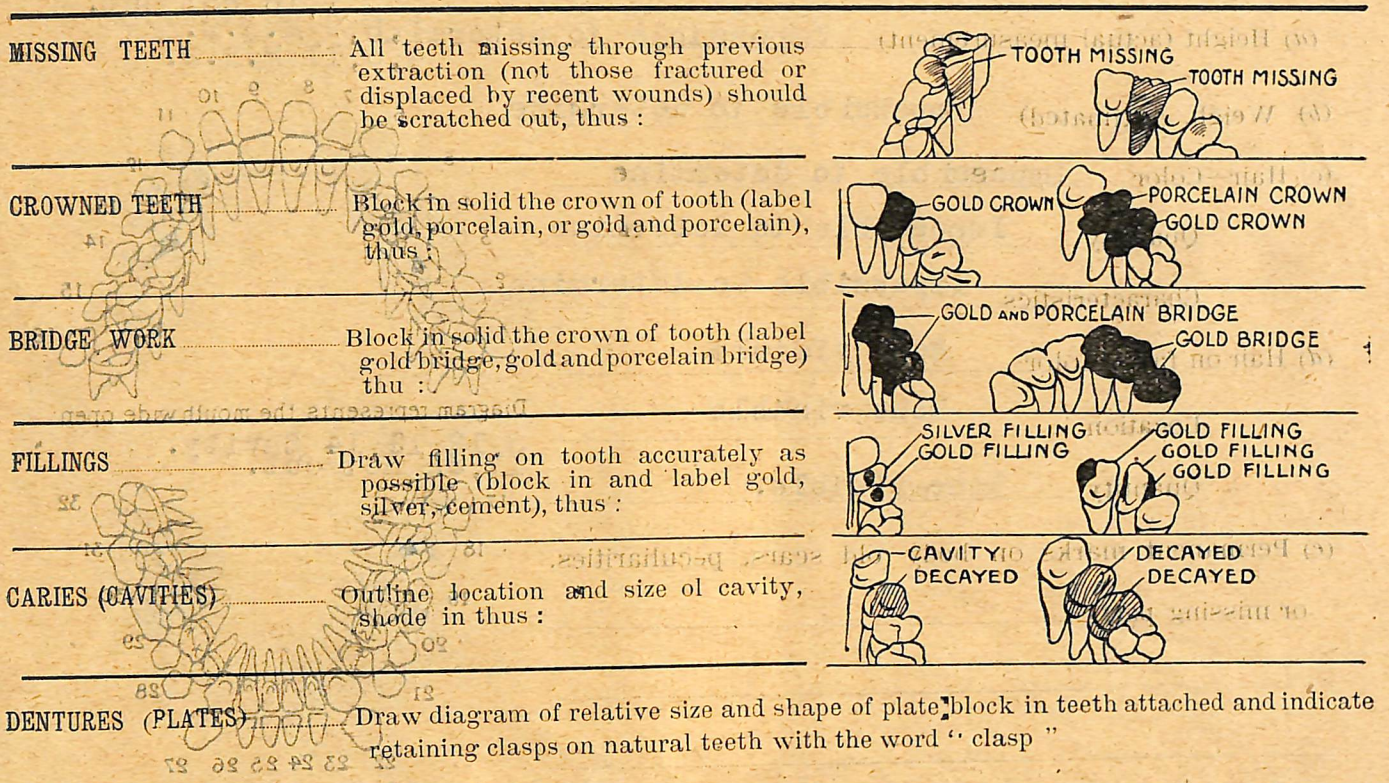 MISSING TEETH All teeth missing through previous
extraction (not those fractured or
displaced by recent wounds) should
be scratched out, thus :
TOOTH MISSING
TOOTH MISSING
CROWNED TEETH Block in solid the crown of tooth (label
gold, porcelain, or gold and porcelain),
thus :
GOLD CROWN
PORCELAIN CROWN
GOLD CROWN
BRIDGE WORK Block in solid the crown of tooth (label
gold bridge, gold and porcelain bridge)
thu :
GOLD AND PORCELAIN BRIDGE
GOLD BRIDGE
FILLINGS Draw filling on tooth accurately as
possible (block in and label gold,
silver, cement), thus :
SILVER FILLING
GOLD FILLING
GOLD FILLING
GOLD FILLING
GOLD FILLING
CARIES (CAVITIES) Outline location and size ol cavity,
shode in thus :
CAVITY
DECAYED
DECAYED
DECAYED
DENTURES (PLATES) Draw diagram of relative size and shape of plate; block in teeth attached and indicate
retaining clasps on natural teeth with the word “ clasp ”